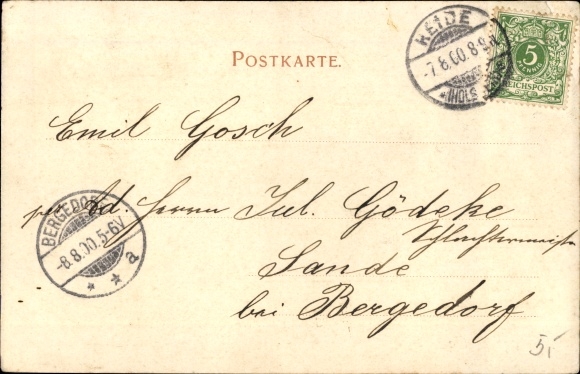 POSTKARTE.
HEIDE
-7.8.00.8-9
*(HOLS
5
PFENNIG
REICHSPOST
Emil Gosch
BERGEDORF
-8.8.00.5-6V
* * a
Ad. Herrn Jul. Gödeke
Schlachtermeister
Sande
bei Bergedorf
5,-